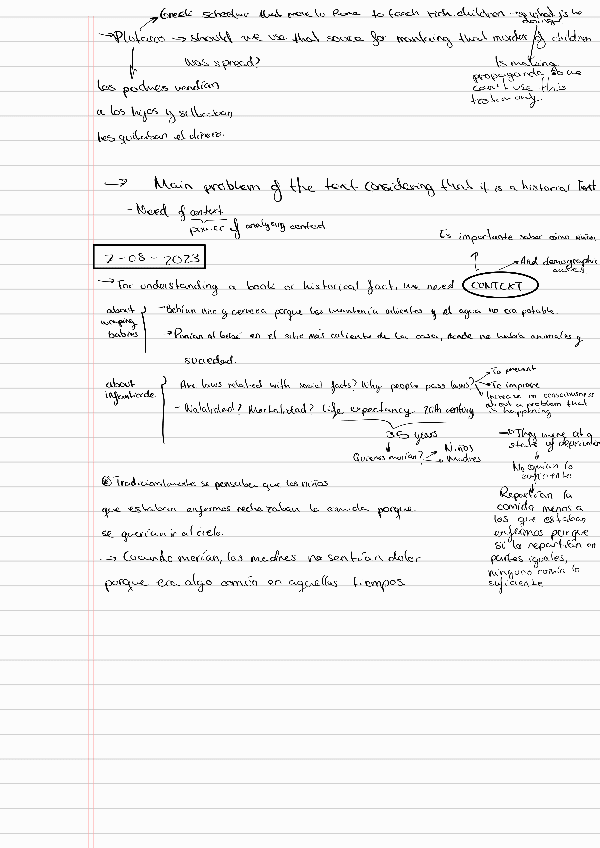 Greek scholar that move to Rome to teach rich children. what is he
→ Plutarco → should we use that source for mantaining that murder of children
was spread?
Is making
propaganda, so we
can't use this
text only.
los padres vendían
a los hijos y
les quitaban el dinero.
→ Main problem of the text considering that it is a historical text
- Need of context
of analysing context
7-08-2023
Es importante saber cómo vivían
And demographic
→ For understanding a book or historical fact, we need CONTEXT
about
babies
- Bebían vino y cerveza porque los mantenía calientes y el agua no era potable.
→ Ponían al bebé en el sitio más caliente de la casa, donde no había animales y
suciedad.
about
infanticide
Are laws related with social facts? Why people pass laws?
→ To prevent
→ To improve
Increase in consciousness
about a problem that
is happening
- Natalidad? Mortalidad? Life expectancy. 20th century
35 years
Quienes morían? → Niños
→ Madres
→ They were at a
state of
No comían lo
suficiente
Repartían la
comida menos a
los que estaban
enfermos porque
si la repartían en
partes iguales,
ninguno comía lo
suficiente
Tradicionalmente se pensaba que los niños
que estaban enfermos rechazaban la comida porque
se querían ir al cielo.
→ Cuando morían, las madres no sentían dolor
porque era algo común en aquellos tiempos